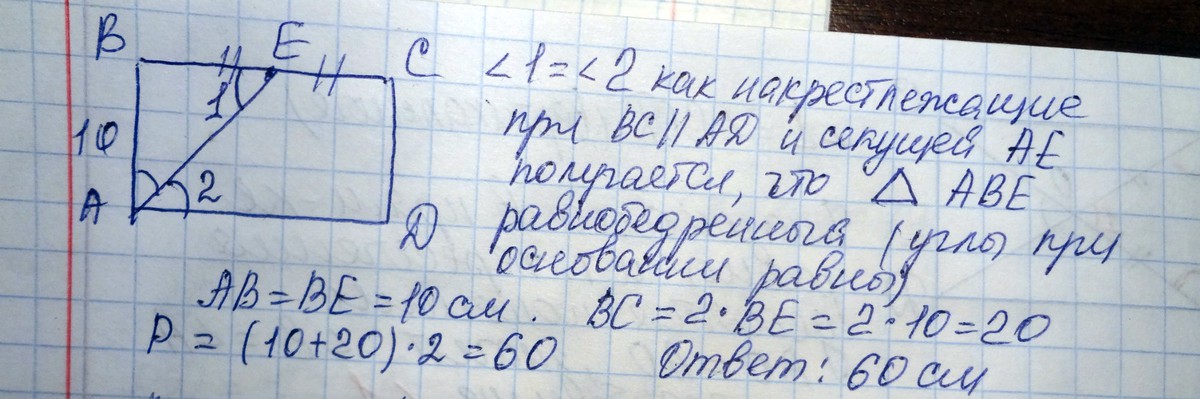 B E C
1
10
2
A D
<1=<2 как накрестлежащие
при BC || AD и секущей AE
получается, что △ ABE
равнобедренный (углы при
основании равны)
AB = BE = 10 см. BC = 2·BE = 2·10 = 20
P = (10+20)·2 = 60 Ответ: 60 см